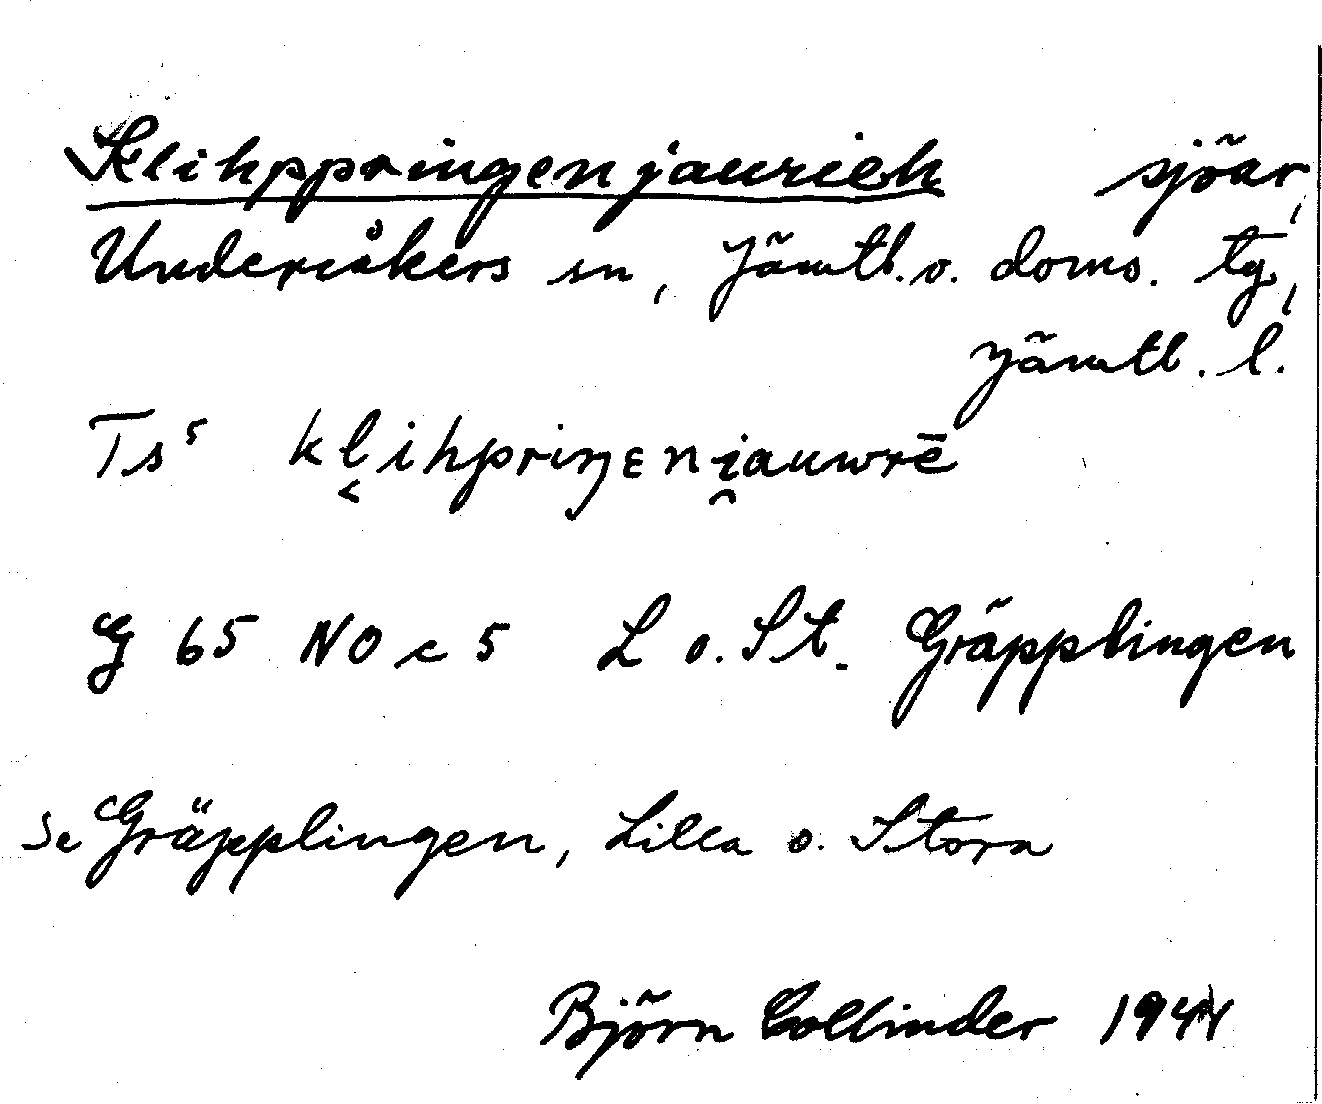 Klihppringenjaurieh sjöar,
Undersåkers sn, Jämtl. o. doms. tg,
Jämtl. l.
Ts⁵ kl̬ihpriŋɛni̯auwrē
G 65 NO c 5 L o. St. Gräpplingen
Se Gräpplingen, Lilla o. Stora
Björn Collinder 1944